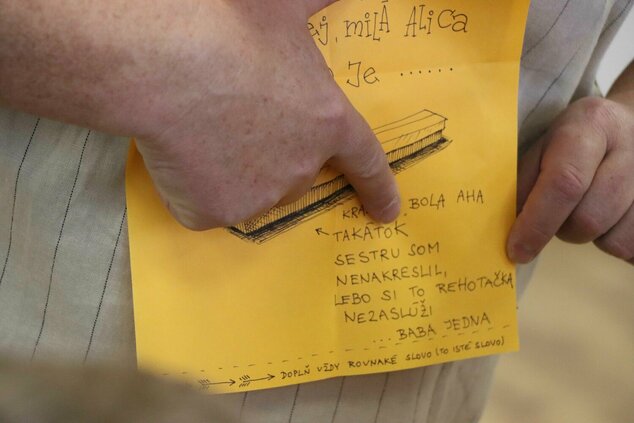 MILÁ ALICA
JE ......
BOLA AHA
TAKÁTOK
SESTRU SOM
NENAKRESLIL,
LEBO SI TO REHOTAČKA
NEZASLÚŽI
... BABA JEDNA
DOPLŇ VŽDY ROVNAKÉ SLOVO (TO ISTÉ SLOVO)